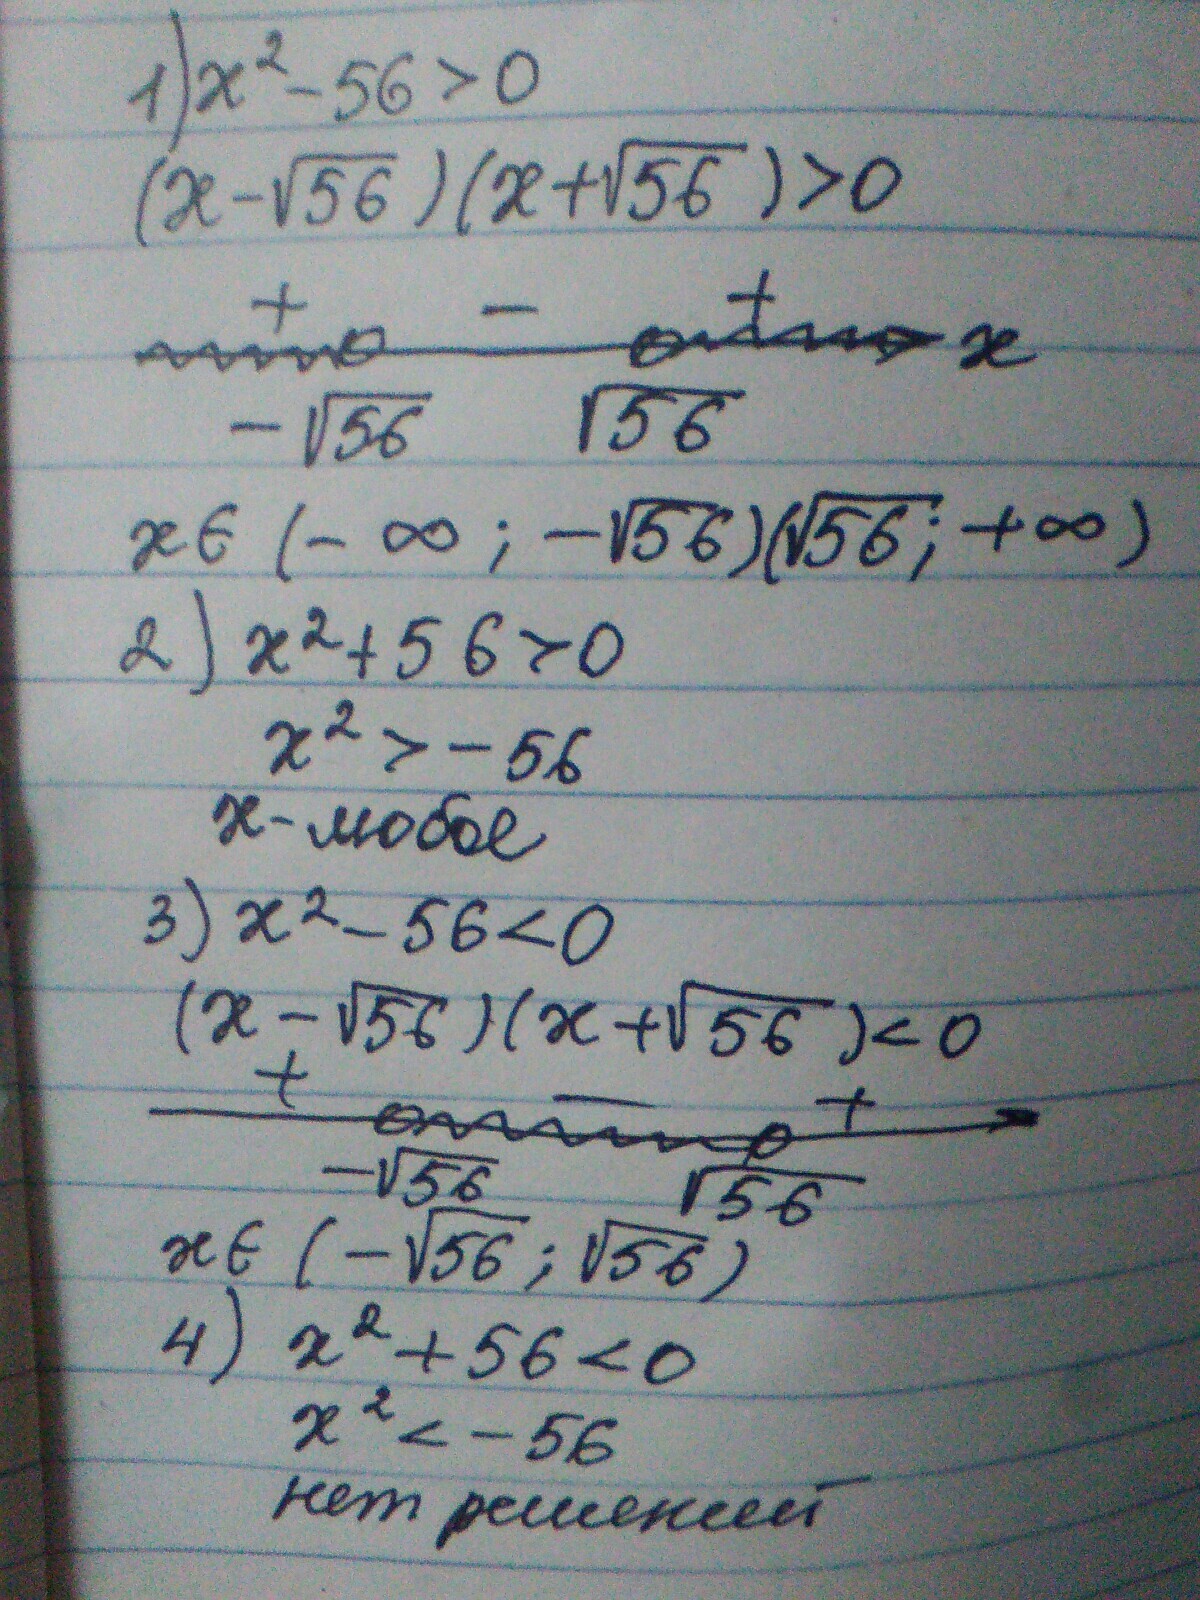 1) x² - 56 > 0
(x - √56)(x + √56) > 0
+ - +
x
-√56 √56
x ∈ (-∞; -√56)(√56; +∞)
2) x² + 56 > 0
x² > -56
x - любое
3) x² - 56 < 0
(x - √56)(x + √56) < 0
+ - +
-√56 √56
x ∈ (-√56; √56)
4) x² + 56 < 0
x² < -56
нет решений